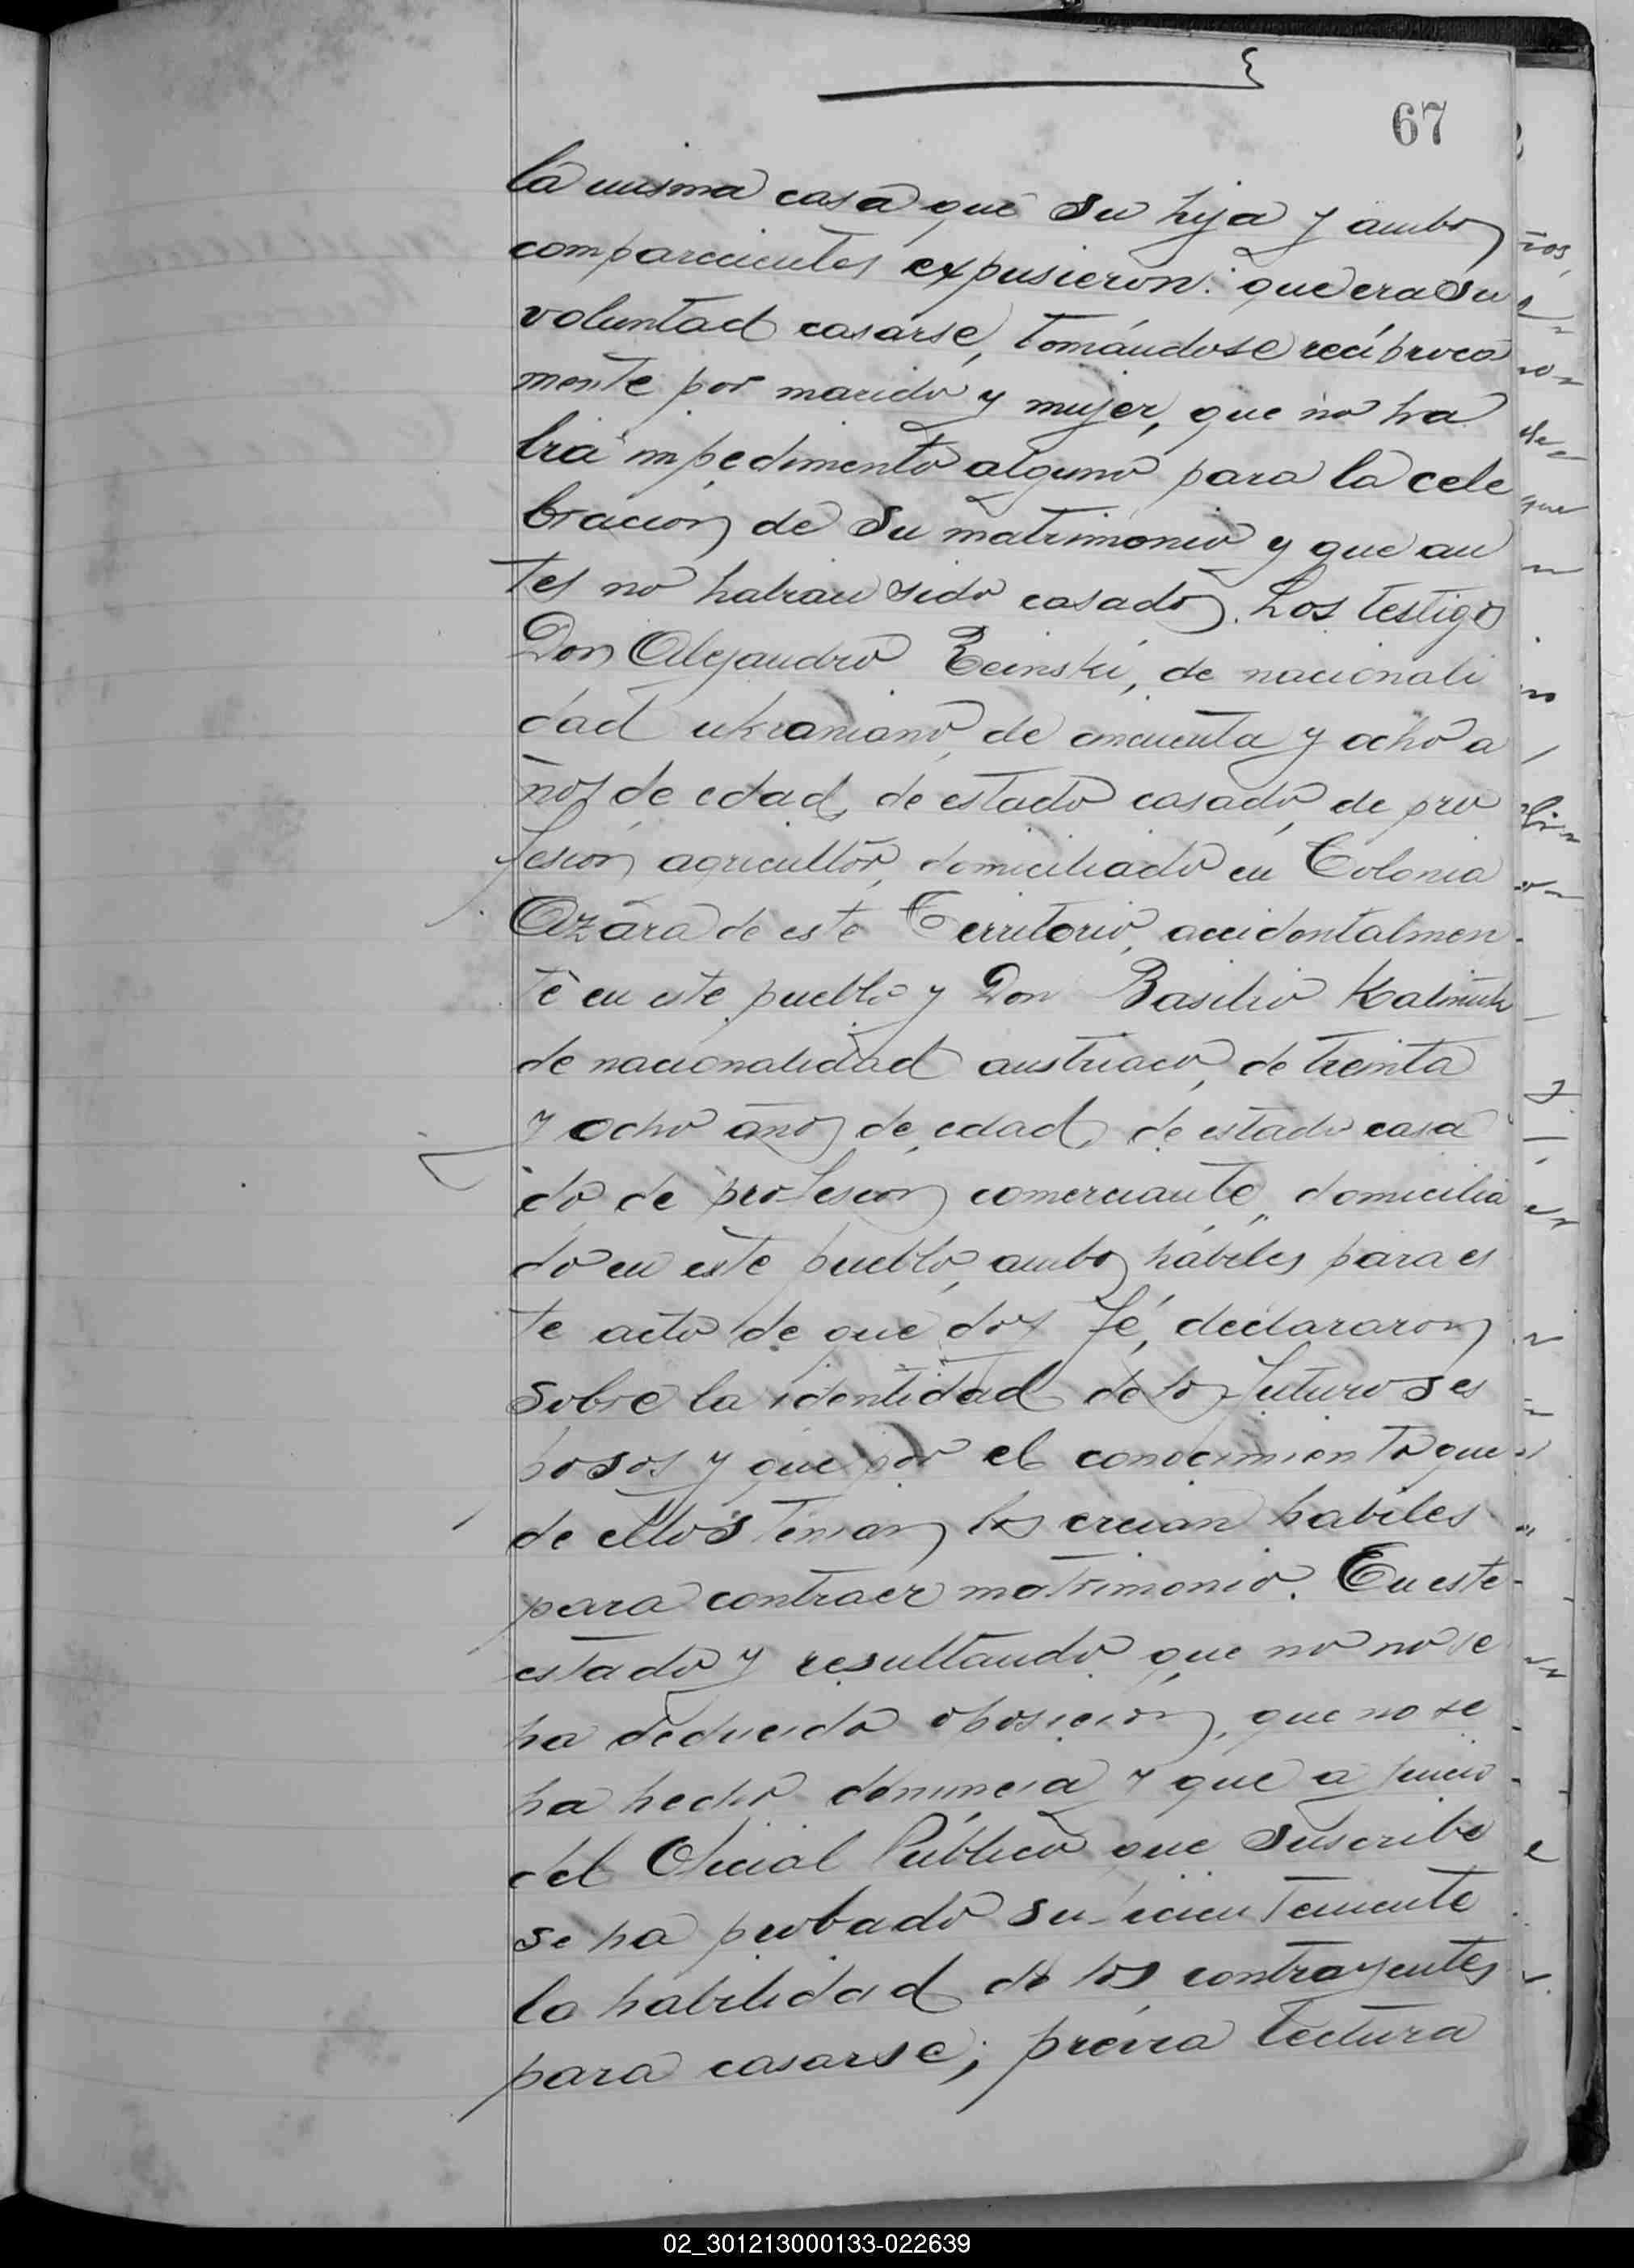 67
la misma casa que su hija y ambos
comparecientes expusieron: que era su
voluntad casarse, tomándose recíproca
mente por marido y mujer, que no ha
bia impedimento alguno para la cele
bracion de su matrimonio y que an
tes no habian sido casados. Los testigos
Don Alejandro de nacionali
dad ukraniano, de cincuenta y ocho a
ños de edad, de estado casado, de pro
fesion agricultor, domiciliado en Colonia
Azara de este Territorio, accidentalmen
te en este pueblo y Don Basilio
de nacionalidad austriaco, de treinta
y ocho años de edad, de estado casa
do de profesion comerciante, domicilia
do en este pueblo, ambos hábiles para es
te acto de que doy fé, declararon
sobre la identidad de los futuros es
posos y que por el conocimiento que
de ellos tenian los creian habiles
para contraer matrimonio. En este
estado y resultando que no no se
ha deducido oposicion, que no se
ha hecho denuncia y que a juicio
del Oficial Público que suscribe
se ha probado suficientemente
la habilidad de los contrayentes
para casarse; prévia lectura
02_301213000133-022639